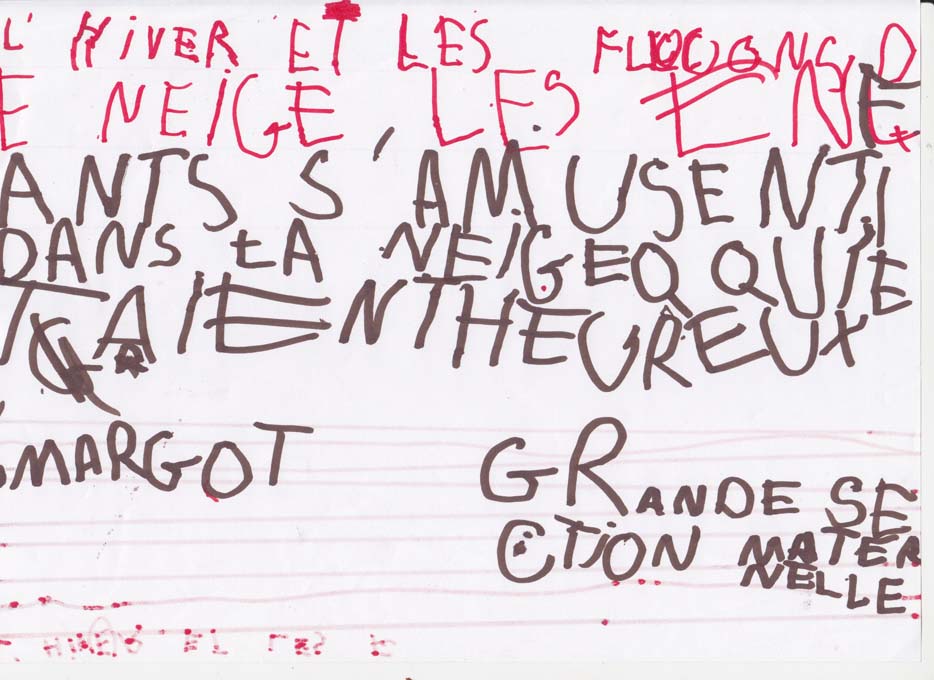 L'HIVER ET LES FLOCONS D
E NEIGE LES ENF
ANTS S'AMUSENT
DANS LA NEIGE QUI E
TAIENT HEUREUX
MARGOT
GRANDE SE
CTION MATER
NELLE
L'HIVER ET LES F